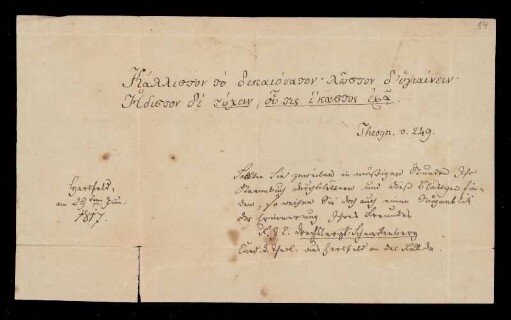 14
Κάλλιστον τὸ δικαιότατον· λῷστον δ'ὑγιαίνειν·
Ἥδιστον δὲ τύχειν, οὗ τις ἕκαστος ἐρᾷ.
Theogn. v. 249.
Sollten Sie zuweilen in müßigen Stunden Ihr
Stammbuch durchblättern und dieses Blättchen fin-
den, so weihen Sie doch auch einen Augenblick
der Erinnerung Ihres Freundes
Hersfeld,
am 29 Jun.
1817.
Cand. d. Theol. aus Hersfeld an der Fulda.